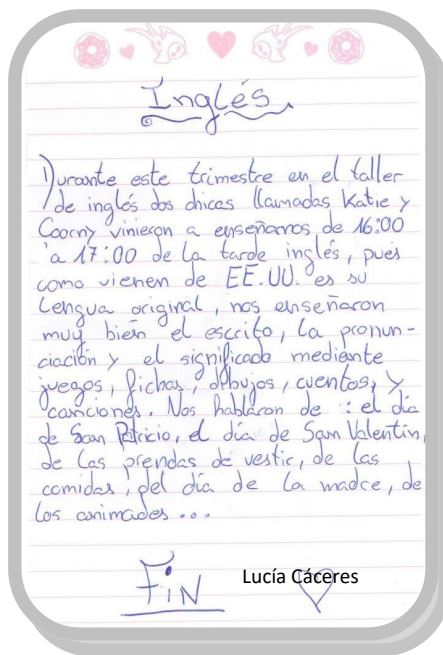 Inglés
Durante este trimestre en el taller
de inglés dos chicas llamadas Katie y
Coorny vinieron a enseñarnos de 16:00
a 17:00 de la tarde inglés, pues
como vienen de EE.UU. es su
lengua original, nos enseñaron
muy bien el escrito, la pronun-
ciación y el significado mediante
juegos, fichas, dibujos, cuentos, y
canciones. Nos hablaron de : el día
de San Patricio, el día de San Valentín,
de las prendas de vestir, de las
comidas, del día de la madre, de
los animales ...
FIN
Lucía Cáceres